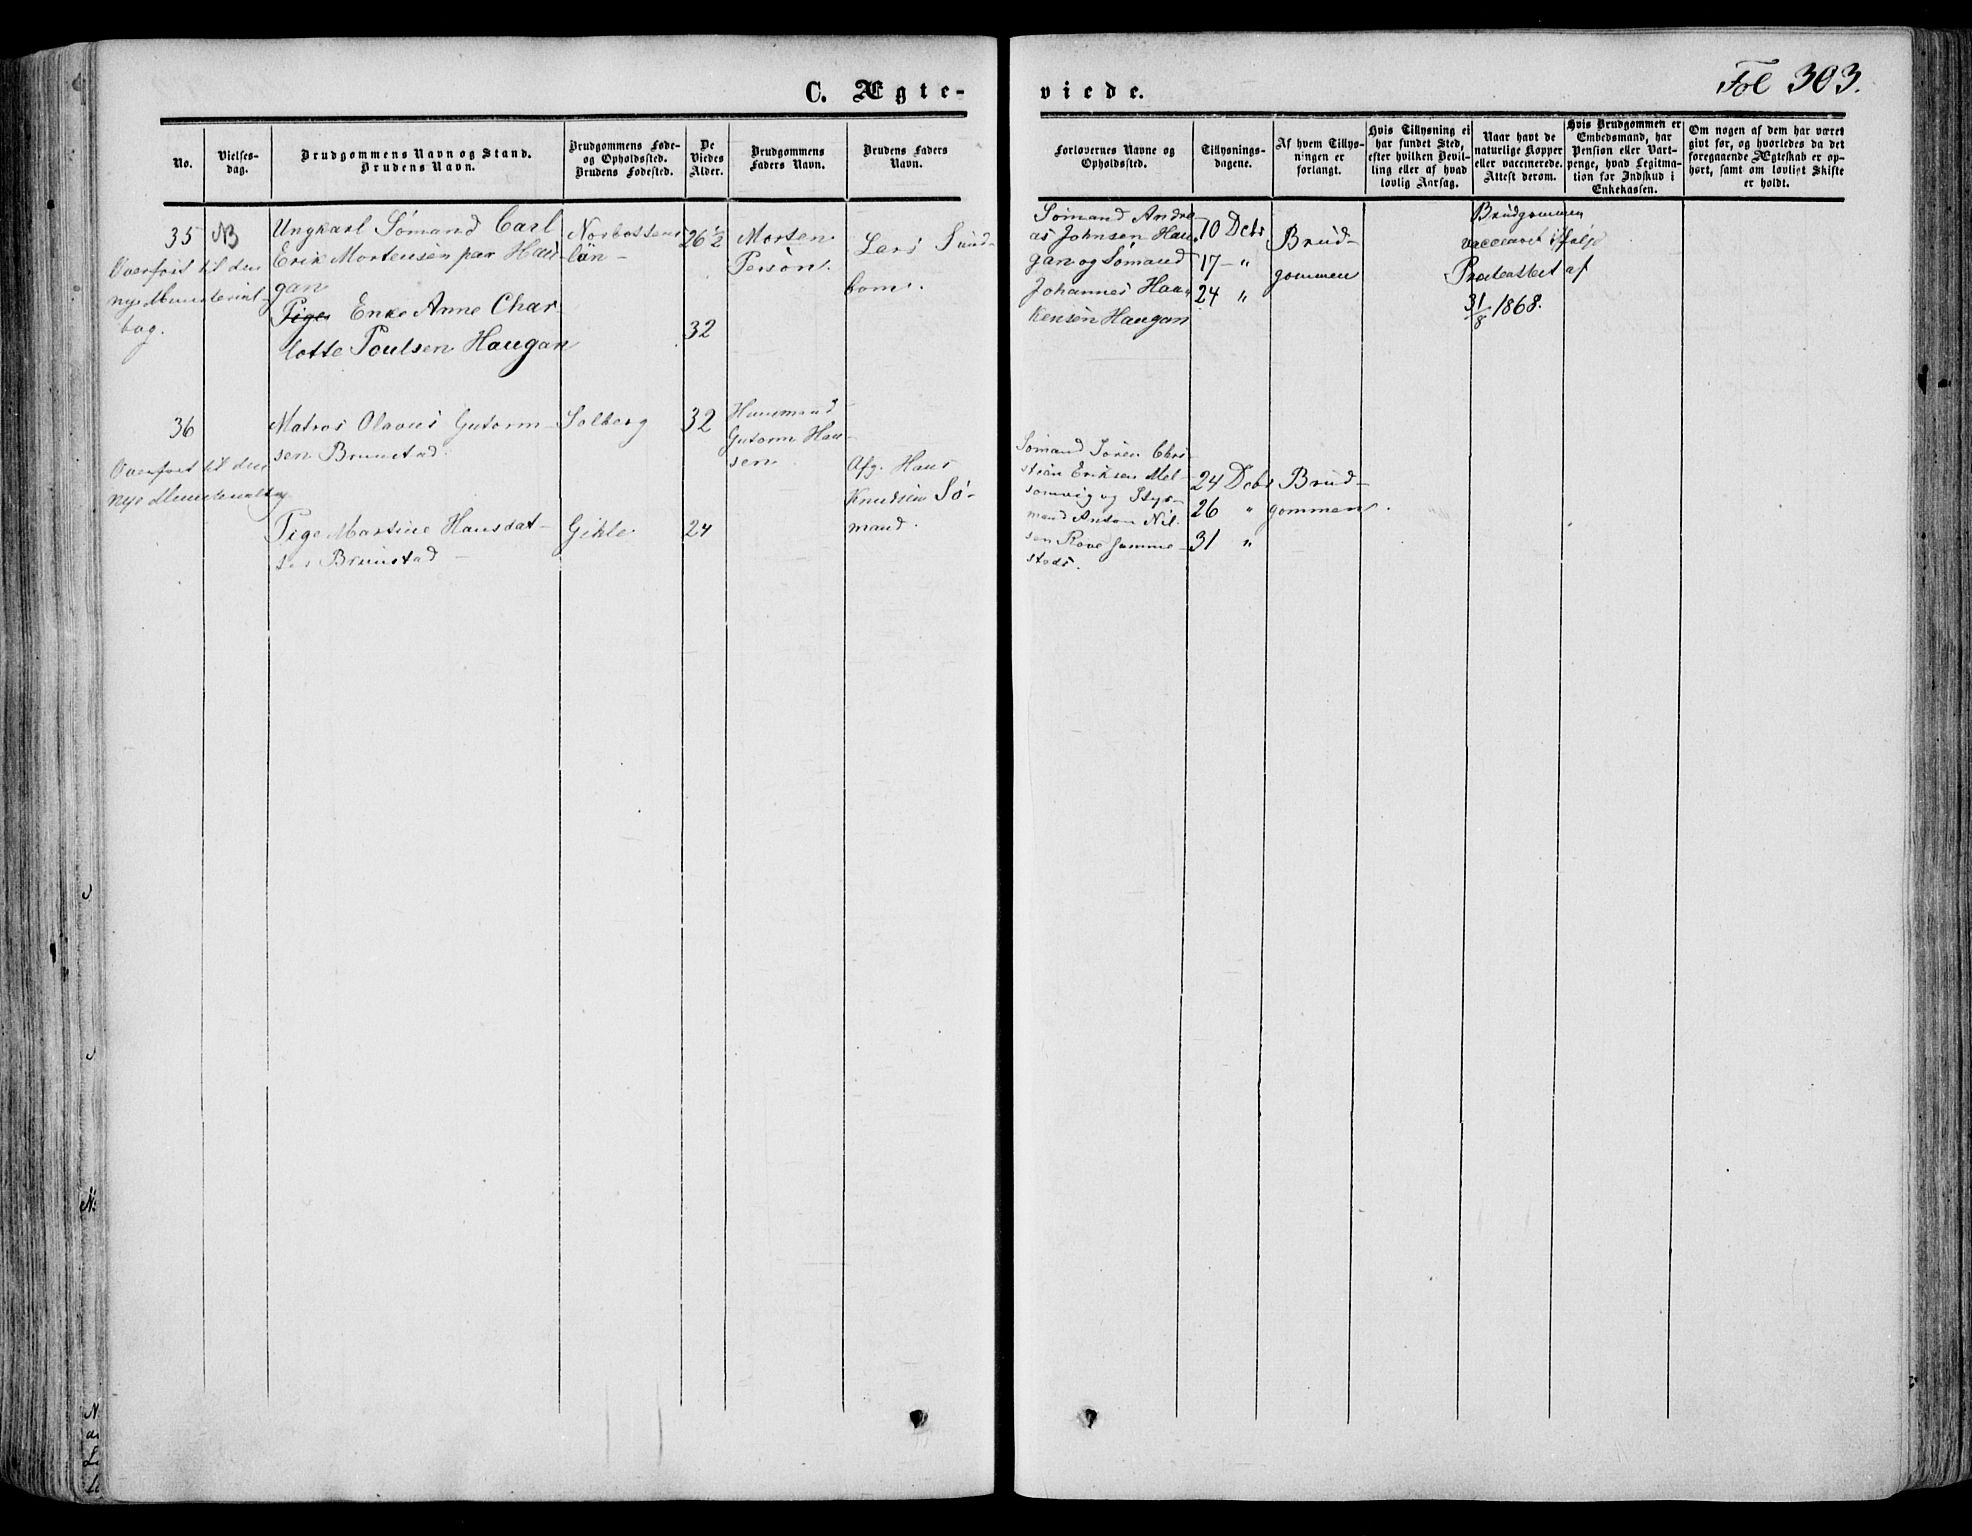 C. Ægte-
viede.
Fol 303.
No.
Vielses-
dag.
Brudgommens Navn og Stand.
Brudens Navn.
Brudgommens Føde-
og Opholdssted.
Brudens Fødested.
De
Viedes
Alder.
Brudgommens
Faders Navn.
Brudens Faders
Navn.
Forlovernes Navne og
Opholdssted.
Tillysnings-
dagene.
Af hvem Tillys-
ningen er
forlangt.
Hvis Tillysning ei
har fundet Sted,
efter hvilken Bevil-
ling eller af hvad
lovlig Aarsag.
Naar havt de
naturlige Kopper
eller vaccinerede.
Attest derom.
Hvis Brudgommen er
Embedsmand, har
Pension eller Vart-
penge, hvad Legitma-
tion for Indskud i
Enkekassen.
Om nogen af dem har været
givt før, og hvorledes da det
foregaaende Ægteskab er op-
hørt, samt om lovligt Skifte
er holdt.
35
NB
Overført til den
nye Ministerial-
bog.
Ungkarl Sømand Carl
Erik Mortensen paa Hau-
gan
Pige Enke Anne Char
lotte Poulsen Haugan
Norbottens
län-
26 1/2
32
Morten
Persøn.
Lars Sund-
bom.
Sømand Andre-
as Johnsen Hau-
gan og Sømand
Johannes Haa-
kensen Haugan
10 Debr
17 - "
24 "
Brud-
gommen
Brudgommen
vaccineret ifølge
Præsteattest af
31/8 1868.
36
Overført til den
nye Ministerialbog
Matros Olavus Gutorm-
sen Brunstad.
Tige Martine Hansdat-
ter Brunstad -
Solberg
Gihle
32
24
Huusmand
Gutorm Han-
sen
Afg. Hans
Knudsen Sø-
mand.
Sømand Søren Chri-
stian Eriksen Mel-
somvig og Styr-
mand Anton Nil-
sen Rove samme-
steds.
24 Debr
26 "
31 "
Brud-
gommen.